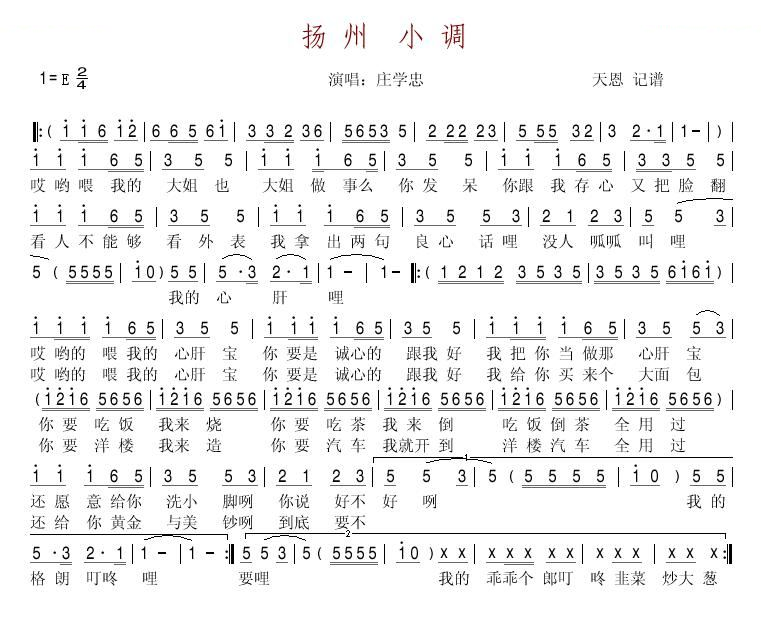 扬州 小调
1=E 2/4 演唱：庄学忠 天恩 记谱
‖:( 1 1 6 1 2 | 6 6 5 6 1 | 3 3 2 3 6 | 5 6 5 3 5 | 2 2 2 2 3 | 5 5 5 3 2 | 3 2·1 | 1 - ) |
1 1 1 6 5 | 3 5 5 | 1 1 1 6 5 | 3 5 5 | 1 1 1 6 5 | 3 3 5 5 |
哎 哟 喂 我的 大姐 也 大姐 做 事么 你 发 呆 你跟 我 存 心 又 把 脸 翻
1 1 1 6 5 | 3 5 5 | 1 1 1 6 5 | 3 5 5 3 | 2 1 2 1 | 2 3 5 5 3 |
看 人 不 能 够 看 外 表 我 拿 出 两 句 良 心 话 哩 没人 呱呱 叫 哩
5 ( 5 5 5 5 | 1 0 ) 5 5 | 5·3 2·1 | 1 - | 1 - ‖:( 1 2 1 2 3 5 3 5 | 3 5 3 5 6 1 6 1 ) |
我的 心 肝 哩
1 1 1 6 5 | 3 5 5 | 1 1 1 6 5 | 3 5 5 | 1 1 1 6 5 | 3 5 5 3 |
哎 哟的 喂 我的 心肝 宝 你 要是 诚心的 跟我 好 我 把 你 当 做那 心肝 宝
哎 哟的 喂 我的 心肝 宝 你 要是 诚心的 跟我 好 我 给 你 买 来个 大面 包
( 1 2 1 6 5 6 5 6 | 1 2 1 6 5 6 5 6 | 1 2 1 6 5 6 5 6 | 1 2 1 6 5 6 5 6 | 1 2 1 6 5 6 5 6 | 1 2 1 6 5 6 5 6 ) |
你 要 吃 饭 我来 烧 你 要 吃 茶 我 来 倒 吃 饭 倒 茶 全 用 过
你 要 洋 楼 我来 造 你 要 汽 车 我就 开 到 洋 楼 汽 车 全 用 过
1 1 1 6 5 | 3 5 5 5 | 2 1 2 3 | 1 5 5 3 | 5 ( 5 5 5 5 | 1 0 ) 5 5 |
还 愿 意 给你 洗小 脚咧 你说 好不 好 咧 我的
还 给 你 黄金 与美 钞咧 到底 要不
5·3 2·1 | 1 - | 1 - :‖ 2 5 5 3 | 5 ( 5 5 5 5 | 1 0 ) x x | x x x x | x x x x :‖
格 朗 叮咚 哩 要哩 我的 乖乖个 郎叮 咚 韭菜 炒大 葱